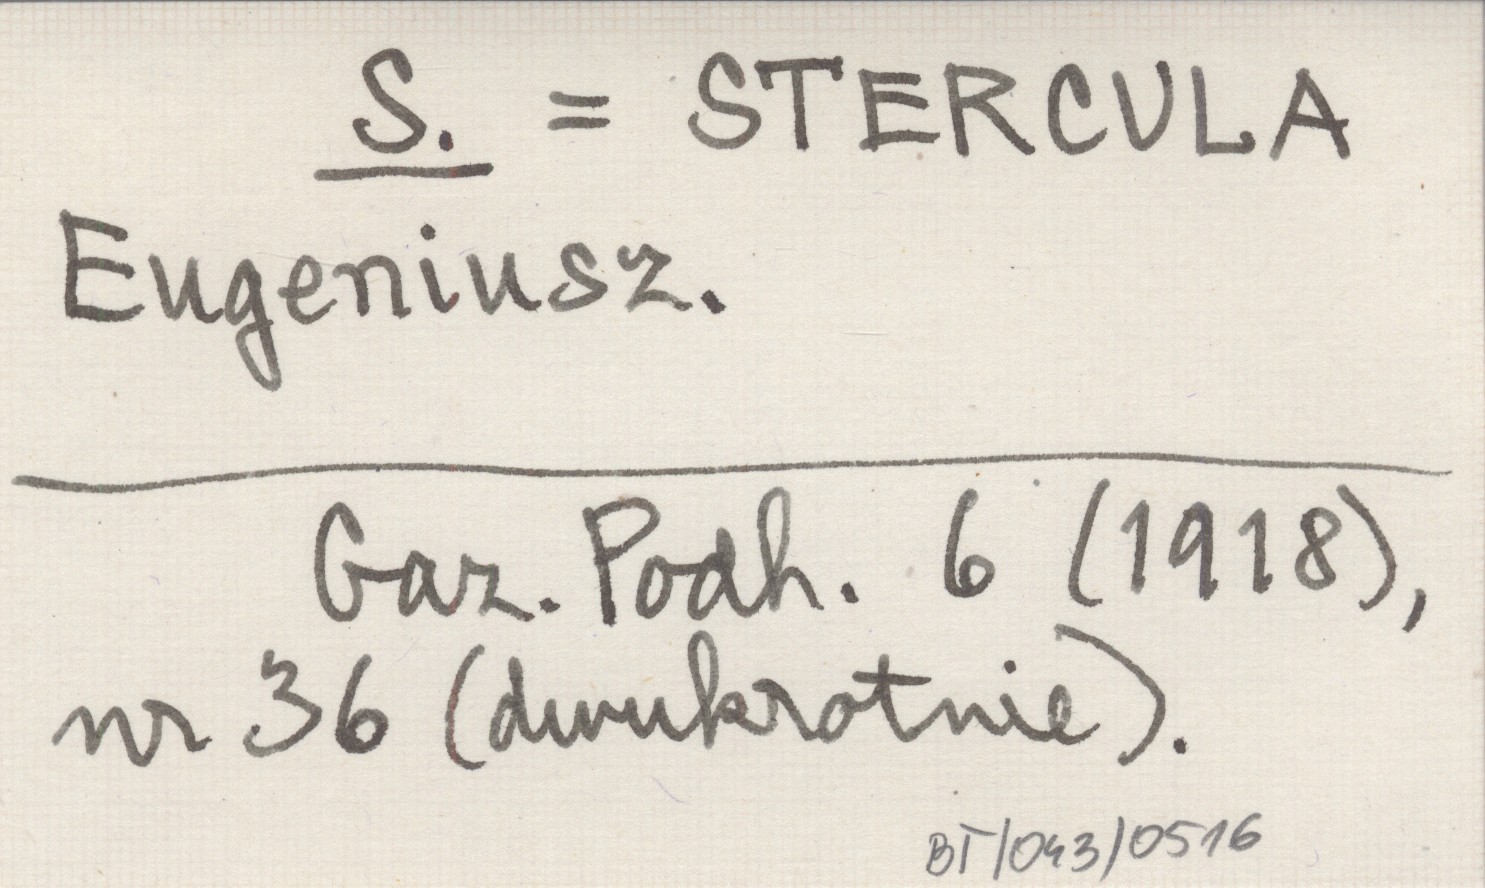 S. = STERCULA
Eugeniusz.
Gaz. Podh. 6 (1918),
nr 36 (dwukrotnie).
BT/043/0516